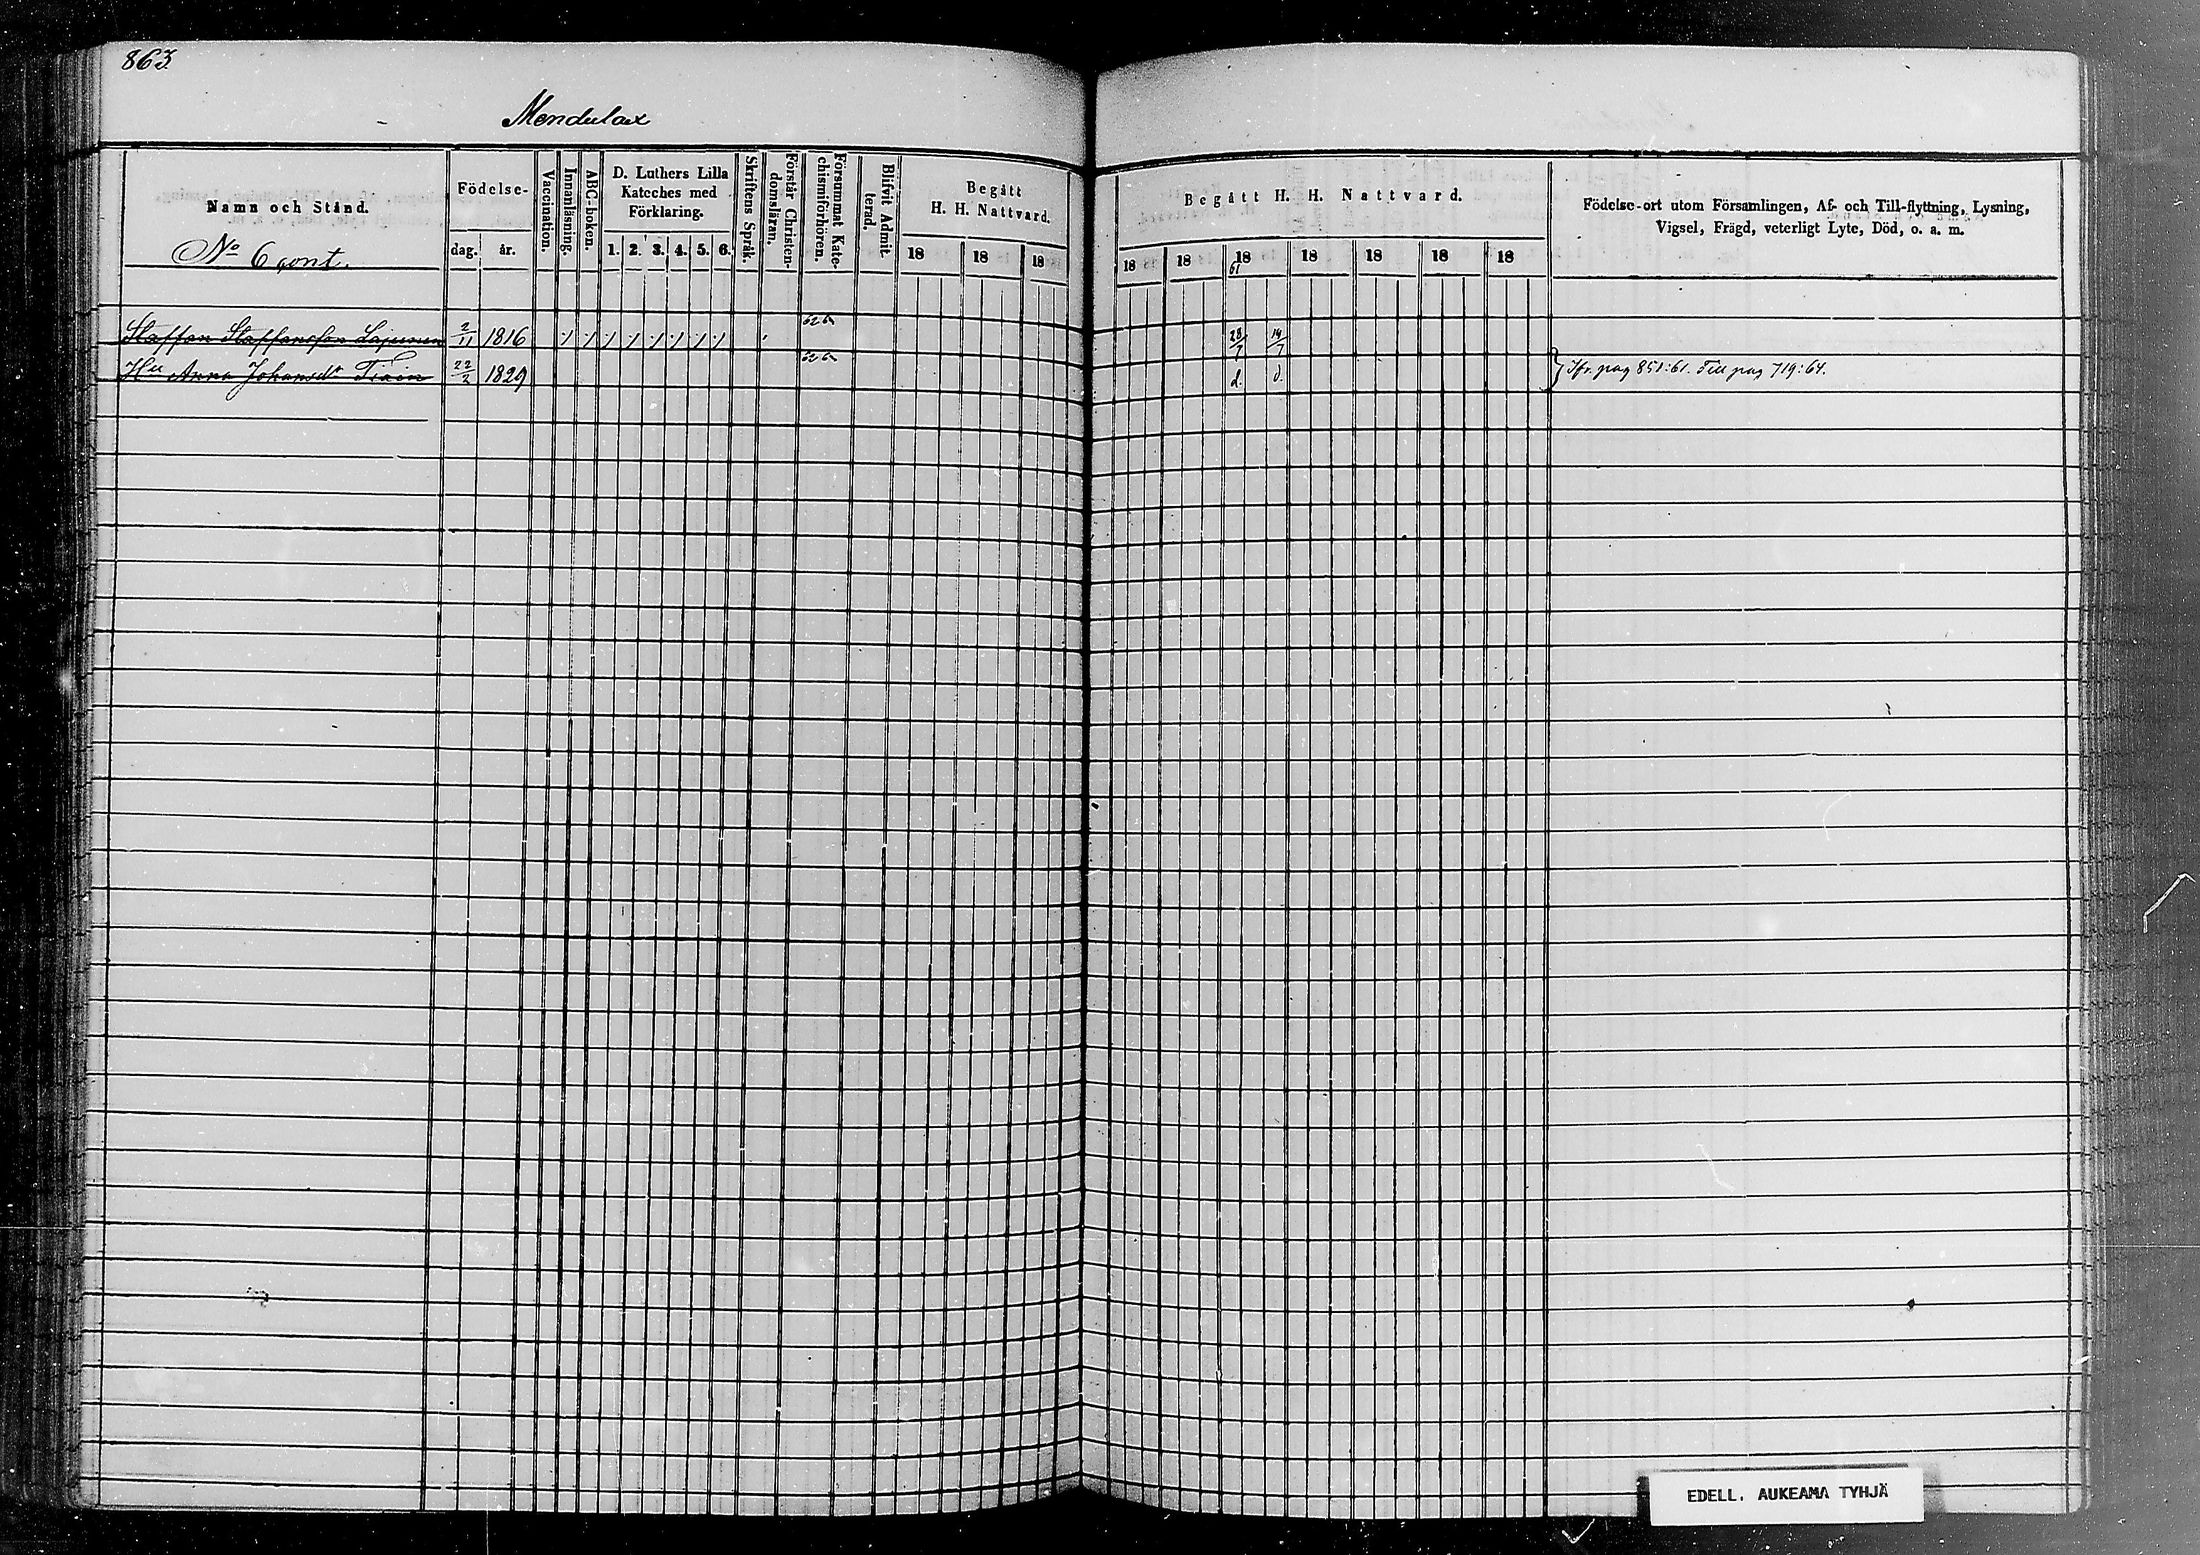 863
Mendulax
Namn och Stånd.
No 6 cont.
Födelse-
dag.
år.
Vaccination.
Innanläsning.
ABC-boken.
D. Luthers Lilla
Kateches med
Förklaring.
1. 2. 3. 4. 5. 6.
Skriftens Språk.
Förstår Christen-
domsläran.
Försummat Kate-
chismiförhören.
Blifvit Admit-
terad.
Begått
H. H. Nattvard.
18 18 18
Begått H. H. Nattvard.
18 18 18 18 18 18 18
61
Födelse-ort utom Församlingen, Af- och Till-flyttning, Lysning,
Vigsel, Frägd, veterligt Lyte, Död, o. a. m.
Staffan Staffansson Lajunen 2/11 1816 28/7 14/7
Hu Anna Johansdr 22/2 1829 d. d.
Ifr. pag 851:61. Till pag 719:64.
EDELL. AUKEAMA TYHJÄ